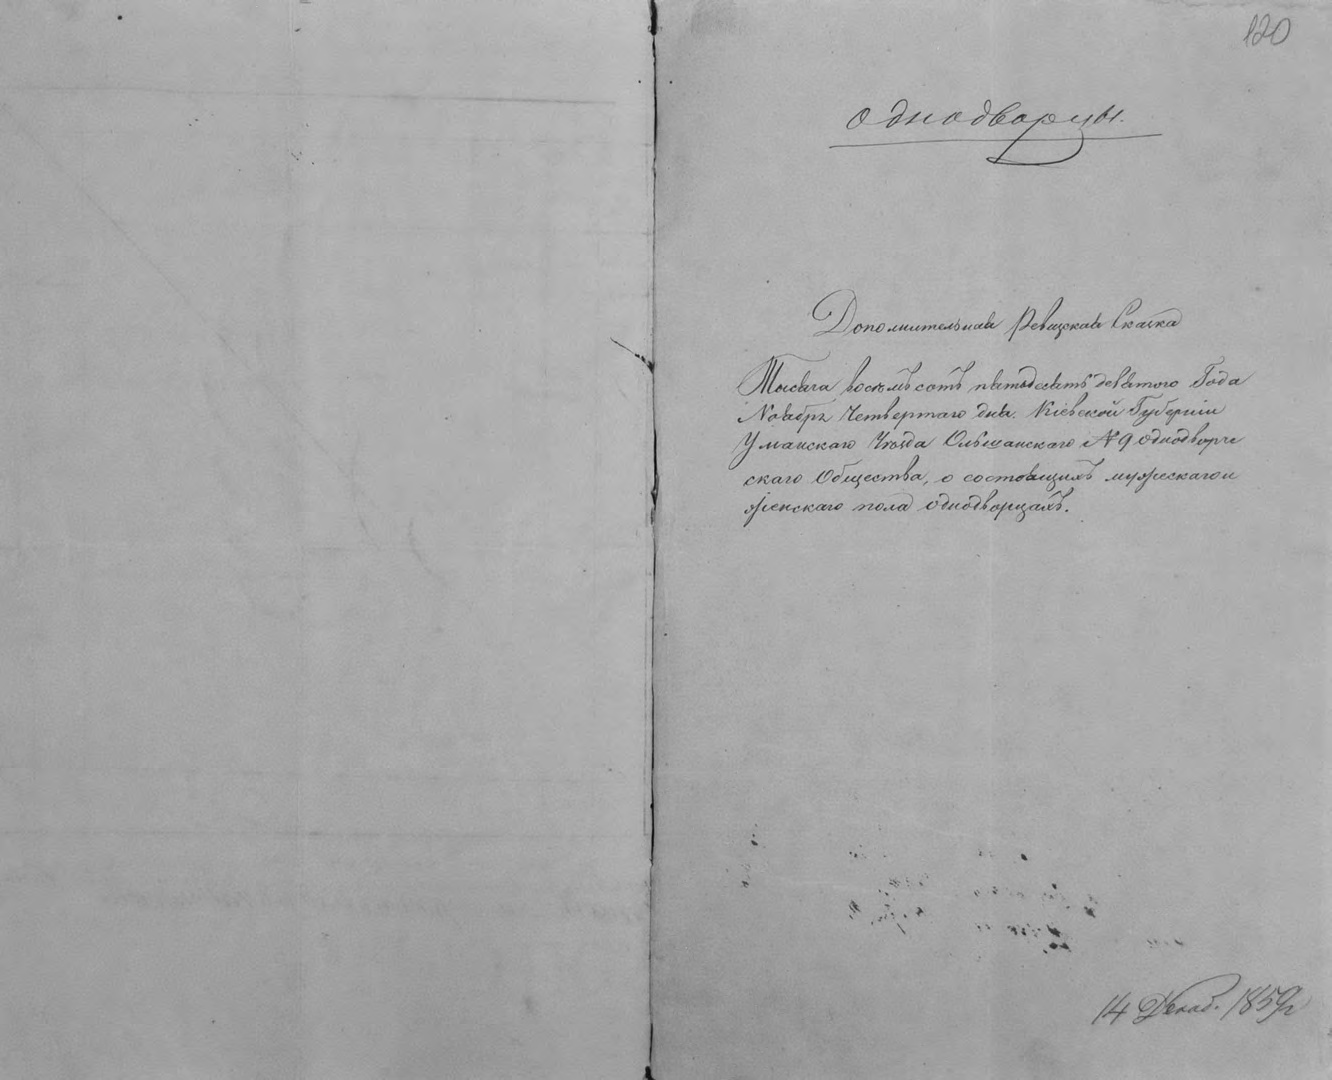 120
однодворцы.
Дополнительная Ревизская Сказка
Тысяча восемъ сотъ пятьдесятъ девятого Года
Ноября Четвертаго дня. Кіевской Губерніи
Уманскаго Уѣзда Ольшанскаго №9 однодворче
скаго Общества, о состоящихъ мужескаго и
женскаго пола однодворцахъ.
14 Декаб. 1859 г